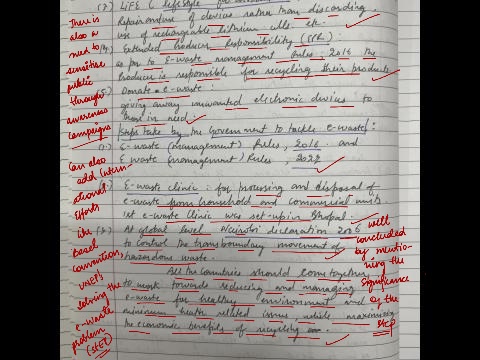 (3) LiFE ( lifestyle for
Repair and use of devices rather than discarding
use of rechargeable lithium cells. etc.
(4) Extended Producer Responsibility (EPR)
as per to E-waste management Rules 2016 the
Producer is responsible for recycling their products
(5) Donate e-waste:
giving away unwanted electronic devices to
those in need.
Steps take by the Government to tackle e-waste:
(1.) E-waste (management) Rules, 2016 and
E waste (management) Rules, 2022
E-waste clinic: for processing and disposal of
e-waste from household and commercial units
1st e-waste clinic was set-up in Bhopal.
At global level Nairobi declaration 2006
to control the transboundary movement of
hazardous waste.
All the countries should come together
to work towards reducing and managing
e-waste for healthy environment and
minimum health related issues, while maximizing
the economic benefits of recycling
There is
also a
need to
sensitise
public
through
awareness
campaigns
Can also
add intern-
ational
Efforts
like
Basel
convention,
UNEP's
solving the
e-waste
problem
(StEP)
well
concluded
by mentio-
ning the
significance
of the
step